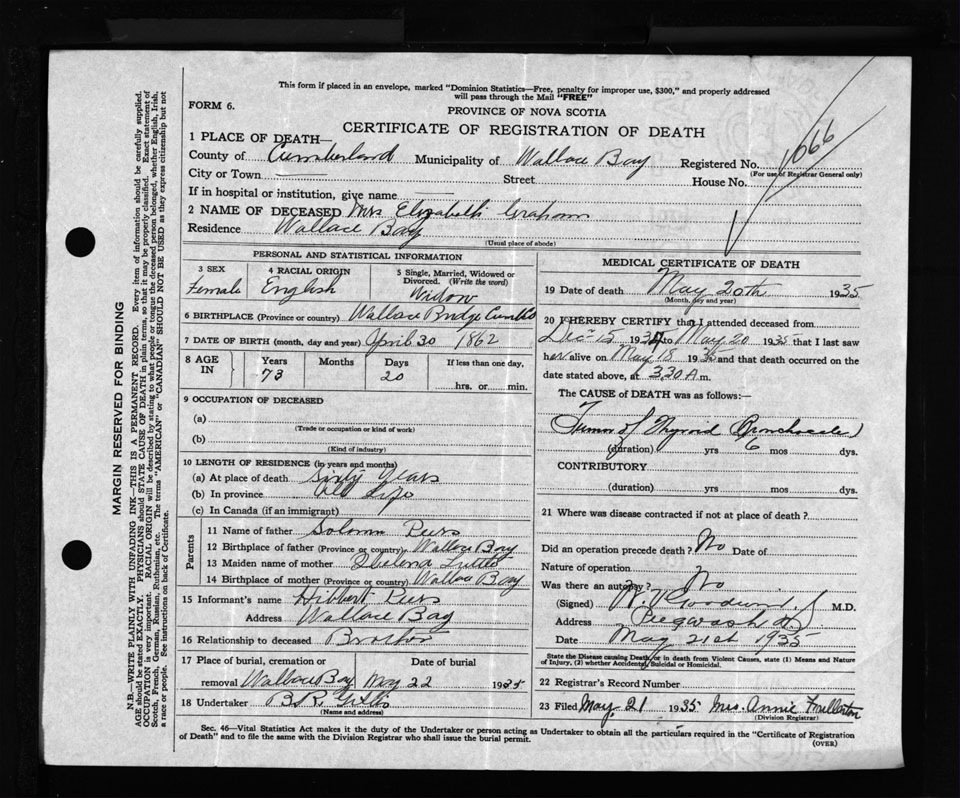 This form if placed in an envelope, marked "Dominion Statistics—Free, penalty for improper use, $300," and properly addressed
will pass through the Mail "FREE"
FORM 6.
PROVINCE OF NOVA SCOTIA
CERTIFICATE OF REGISTRATION OF DEATH
1066
1 PLACE OF DEATH—
County of Cumberland Municipality of Wallace Bay Registered No.
(For use of Registrar General only)
City or Town Street House No.
If in hospital or institution, give name
2 NAME OF DECEASED Mrs Elizabeth Graham
Residence Wallace Bay
(Usual place of abode)
PERSONAL AND STATISTICAL INFORMATION
3 SEX Female
4 RACIAL ORIGIN English
5 Single, Married, Widowed or Divorced. (Write the word) Widow
6 BIRTHPLACE (Province or country) Wallace Bridge
7 DATE OF BIRTH (month, day and year) April 30 1862
8 AGE IN Years 73 Months Days 20 If less than one day, hrs. or min.
9 OCCUPATION OF DECEASED
(a)
(Trade or occupation or kind of work)
(b)
(Kind of industry)
10 LENGTH OF RESIDENCE (in years and months)
(a) At place of death Sixty Years
(b) In province All Life
(c) In Canada (if an immigrant)
Parents
11 Name of father Solomon
12 Birthplace of father (Province or country) Wallace Bay
13 Maiden name of mother
14 Birthplace of mother (Province or country) Wallace Bay
15 Informant's name Hibbert
Address Wallace Bay
16 Relationship to deceased Brother
17 Place of burial, cremation or Date of burial
removal Wallace Bay May 22 1935
18 Undertaker B R
(Name and address)
MEDICAL CERTIFICATE OF DEATH
19 Date of death May 20th 1935
(Month, day and year)
20 I HEREBY CERTIFY that I attended deceased from
Dec 15 1934 to May 20 1935 that I last saw
her alive on May 18 1935 and that death occurred on the
date stated above, at 3.30 A m.
The CAUSE of DEATH was as follows:—
Tumor of Thyroid
(duration) yrs 6 mos dys.
CONTRIBUTORY
(duration) yrs mos dys.
21 Where was disease contracted if not at place of death?
Did an operation precede death? No Date of
Nature of operation
Was there an autopsy? No
(Signed) M.D.
Address Pugwash
Date May 21st 1935
State the Disease causing Death, or in death from Violent Causes, state (1) Means and Nature
of Injury, (2) whether Accidental, Suicidal or Homicidal.
22 Registrar's Record Number
23 Filed May 21 1935 Mrs. Annie Fullerton
(Division Registrar)
Sec. 46—Vital Statistics Act makes it the duty of the Undertaker or person acting as Undertaker to obtain all the particulars required in the "Certificate of Registration
of Death" and to file the same with the Division Registrar who shall issue the burial permit.
(OVER)
MARGIN RESERVED FOR BINDING
N.B.—WRITE PLAINLY WITH UNFADING INK—THIS IS A PERMANENT RECORD. Every item of information should be carefully supplied.
AGE should be stated EXACTLY. PHYSICIANS should STATE CAUSE OF DEATH in plain terms, so that it may be properly classified. Exact statement of
OCCUPATION is very important. RACIAL ORIGIN will be described by stating to what people or tongue the deceased person belonged, whether English, Irish,
Scotch, French, German, Russian, Ruthenian, etc. The terms "AMERICAN" or "CANADIAN" SHOULD NOT BE USED as they express citizenship but not
a race or people. See instructions on back of Certificate.